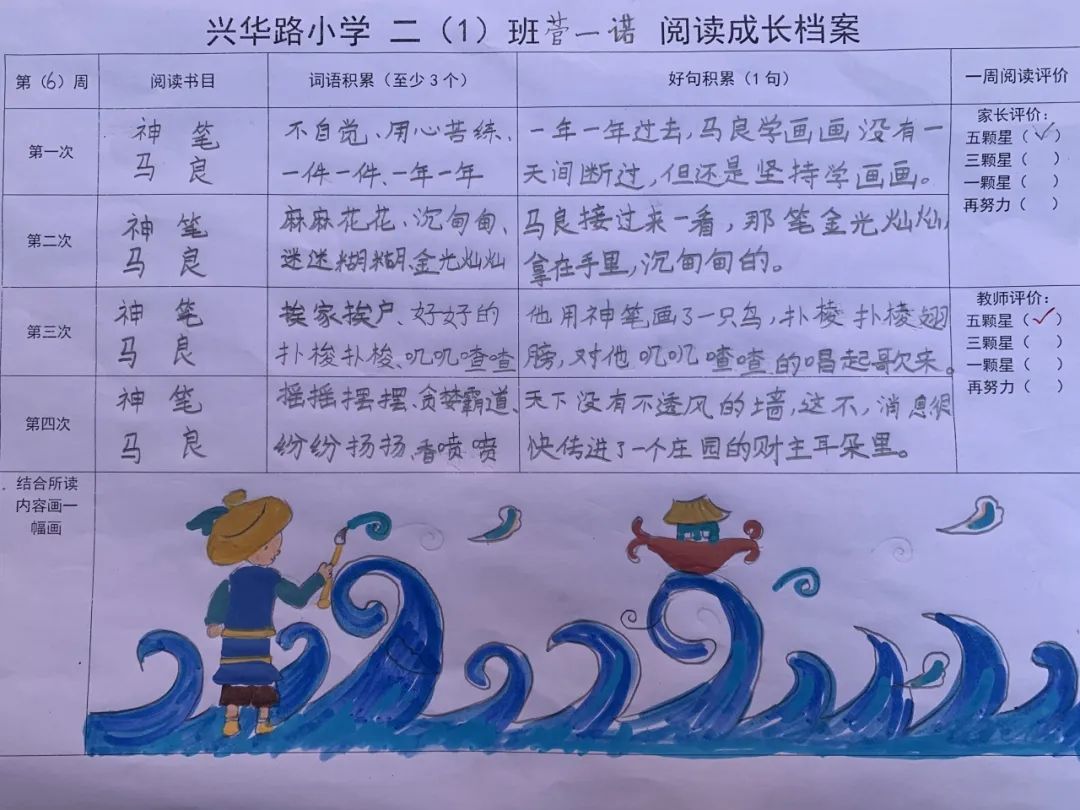 兴华路小学 二（1）班 菅一诺 阅读成长档案
第（6）周 阅读书目 词语积累（至少3个） 好句积累（1句） 一周阅读评价
第一次
神笔
马良
不自觉、用心苦练、
一件一件、一年一年
一年一年过去，马良学画画没有一
天间断过，但还是坚持学画画。
家长评价：
五颗星（✓）
三颗星（ ）
一颗星（ ）
再努力（ ）
第二次
神笔
马良
麻麻花花、沉甸甸、
迷迷糊糊、金光灿灿
马良接过来一看，那笔金光灿灿，
拿在手里，沉甸甸的。
第三次
神笔
马良
挨家挨户、好好的
扑梭扑梭、叽叽喳喳
他用神笔画了一只鸟，扑棱扑棱翅
膀，对他叽叽喳喳的唱起歌来。
教师评价：
五颗星（✓）
三颗星（ ）
一颗星（ ）
再努力（ ）
第四次
神笔
马良
摇摇摆摆、贪婪霸道、
纷纷扬扬、香喷喷
天下没有不透风的墙，这不，消息很
快传进了一个庄园的财主耳朵里。
结合所读
内容画一
幅画